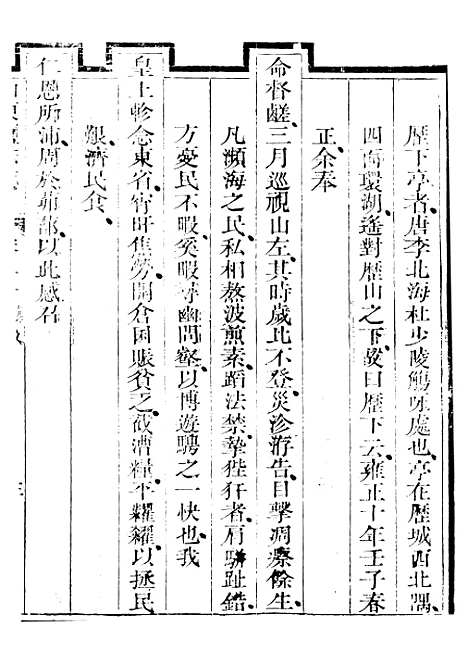 歷下亭者唐李北海杜少陵觴咏處也亭在歷城西北隅
四面環湖遙對歷山之下故曰歷下云雍正十年壬子春
正余奉
命督鹺三月巡視山左其時歲比不登災沴洊告目擊凋瘵餘生
凡瀕海之民私相熬波煎素蹈法禁摯狴犴者肩駢趾錯
方憂民不暇奚暇尋幽問壑以博遊騁之一快也我
皇上軫念東省宵旰焦勞開倉囷賑貧乏截漕糧平糶糴以拯民
艱濟民食
仁恩所沛周於蔀部以此感召